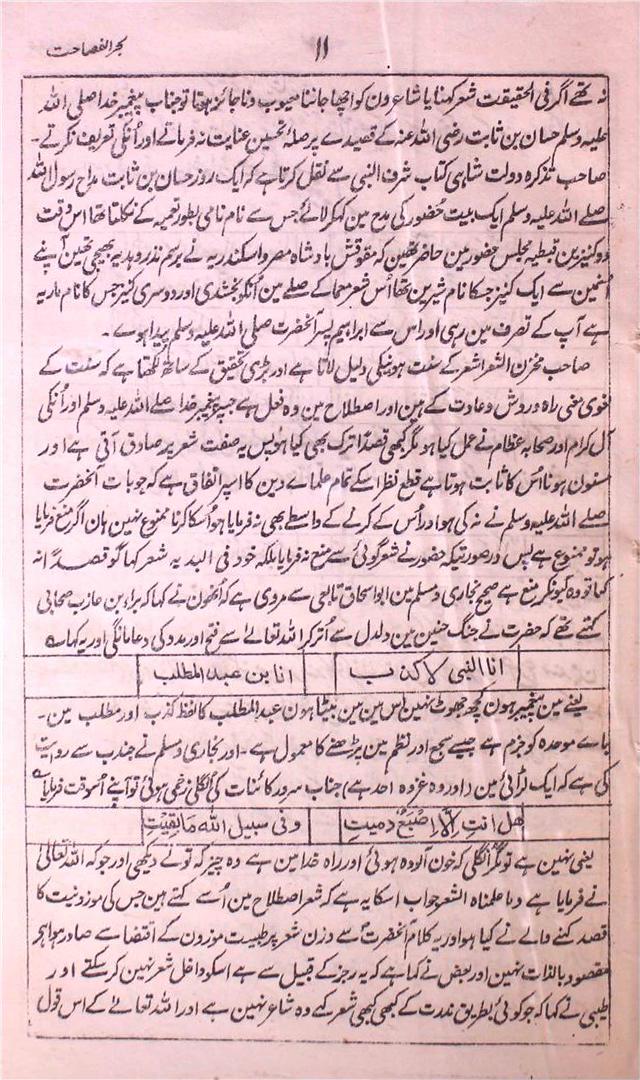 بحر الفصاحت
۱۱
نہ تھے اگر فی الحقیقت شعر کہنا یا شاعرون کو اچھا جاننا معیوب و ناجائز ہوتا تو جناب پیغمبر خدا صلی اللہ
علیہ وسلم حسان بن ثابت رضی اللہ عنہ کے قصیدے پر صلۂ تحسین عنایت نہ فرماتے اور اُنکی تعریف نکرتے۔
صاحب تذکرہ دولت شاہی کتاب شرف النبی سے نقل کرتا ہے کہ ایک روز حسان بن ثابت مداح رسول اللہ
صلے اللہ علیہ وسلم ایک بیت حضور کی مدح مین کہکر لائے جس سے نام نامی بطور تعمیہ کے نکلتا تھا اس وقت
دو کنیزین قبطیہ مجلس حضور مین حاضر تھین کہ مقوقش بادشاہ مصر و اسکندریہ نے برسم نذر و ہدیہ بھیجی تھین آپنے
اُنمین سے ایک کنیز جسکا نام شیرین تھا اُس شعر معما کے صلے مین اُنکو بخشدی اور دوسری کنیز جس کا نام ماریہ
ہے آپ کے تصرف مین رہی اور اس سے ابراہیم پسر آنحضرت صلی اللہ علیہ وسلم پیدا ہوے۔
صاحب مخزن الشعرا شعر کے سنت ہونیکی دلیل لاتا ہے اور بڑی تحقیق کے ساتھ لکھتا ہے کہ سنت کے
لغوی معنی راہ و روش و عادت کے ہین اور اصطلاح مین وہ فعل ہے جسپر پیغمبر خدا صلے اللہ علیہ وسلم اور اُنکی
آل کرام اور صحابہ عظام نے عمل کیا ہو مگر کبھی قصداً ترک بھی کیا ہو پس یہ صفت شعر پر صادق آتی ہے اور
مسنون ہونا اُس کا ثابت ہوتا ہے قطع نظر اسکے تمام علماے دین کا اسپر اتفاق ہے کہ جو بات آنحضرت
صلے اللہ علیہ وسلم نے نہ کی ہو اور اُس کے کرنے کے واسطے بھی نہ فرمایا ہو اُسکا کرنا ممنوع نہین ہان اگر منع فرمایا
ہو تو ممنوع ہے پس درصورتیکہ حضور نے شعر گوئی سے منع نہ فرمایا بلکہ خود فی البدیہ شعر کہا گو قصداً نہ
کہا تو وہ کیونکر منع ہے صحیح بخاری و مسلم مین ابو اسحاق تابعی سے مروی ہے کہ اُنھون نے کہا کہ براء بن عازب صحابی
کہتے تھے کہ حضرت نے جنگ حنین مین دلدل سے اُتر کر اللہ تعالےٰ سے فتح اور مدد کی دعا مانگی اور یہ کہا ؎
انا النبی لا کذب انا بن عبد المطلب
یعنے مین پیغمبر ہون کچھ جھوٹ نہین اس مین مین بیٹا ہون عبد المطلب کا لفظ کذب اور مطلب مین۔
باے موحدہ کو جزم ہے جیسے سجع اور نظم مین پڑھنے کا معمول ہے۔ اور بخاری و مسلم نے جندب سے روایت
کی ہے کہ ایک لڑائی مین (اور وہ غزوہ احد ہے) جناب سرور کائنات کی اُنگلی زخمی ہوئی تو آپنے اُسوقت فرمایا ؎
هل انتِ اِلَّا اِصْبَعٌ دمیتِ وفی سبیل الله مَا لَقِیْتِ
یعنی نہین ہے تو مگر اُنگلی کہ خون آلودہ ہوئی اور راہ خدا مین ہے وہ چیز کہ تونے دیکھی اور جو کہ اللہ تعالیٰ
نے فرمایا ہے وما علمناہ الشعر جواب اسکا یہ ہے کہ شعر اصطلاح مین اُسے کہتے ہین جس کی موزونیت کا
قصد کہنے والے نے کیا ہو اور یہ کلام آنحضرت سے وزن شعر پر طبیعت موزون کے اقتضا سے صادر ہوا ہے
مقصود بالذات نہین اور بعض نے کہا ہے کہ یہ رجز کے قبیل سے ہے اسکو داخل شعر نہین کر سکتے اور
طیبی نے کہا کہ جو کوئی بطریق ندرت کے کبھی کبھی شعر کہے وہ شاعر نہین ہے اور اللہ تعالےٰ کے اس قول